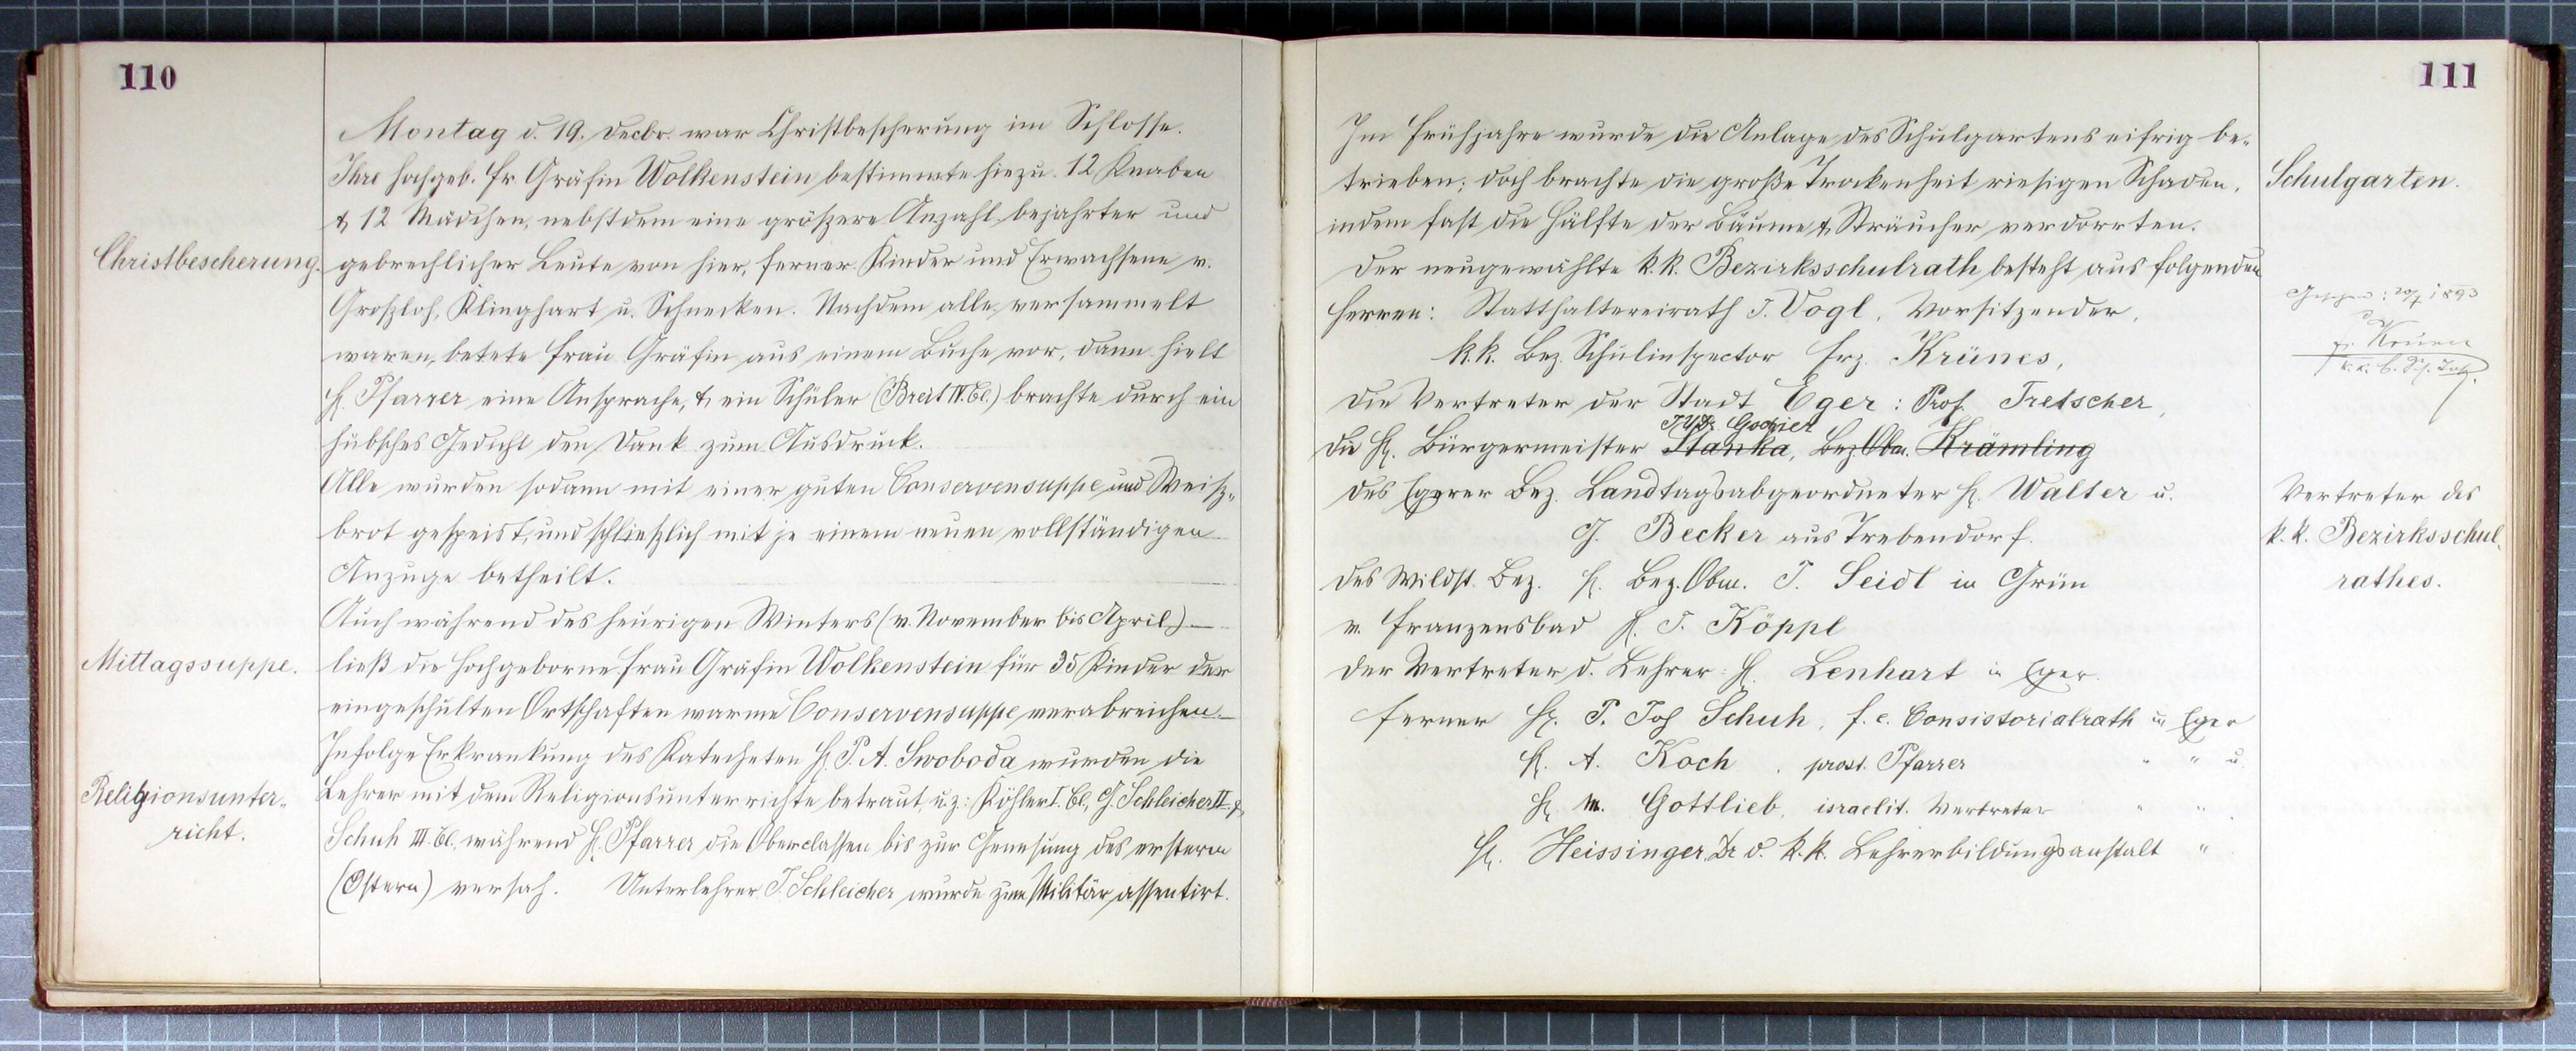 110
Montag d. 19. Decbr. war Christbescherung im Schlosse.
Ihre hochgeb. Fr. Gräfin Wolkenstein bestimmte hiezu 12 Knaben
& 12 Mädchen, nebstdem eine größere Anzahl bejahrter und
Christbescherung.
gebrechlicher Leute von hier, ferner Kinder und Erwachsene v.
Großloh, Klinghart u. Schnecken. Nachdem alle versammelt
waren, betete Frau Gräfin aus einem Buche vor, dann hielt
H. Pfarrer eine Ansprache, & ein Schüler (Breit IV. Cl.) brachte durch ein
hübsches Gedicht den Dank zum Ausdruck.
Alle wurden sodann mit einer guten Conservensuppe und Weiß-
brot gespeist, und schließlich mit je einem neuen vollständigen
Anzuge betheilt.
Auch während des heurigen Winters (v. November bis April)
Mittagssuppe.
ließ die hochgeborne Frau Gräfin Wolkenstein für 35 Kinder der
eingeschulten Ortschaften warme Conservensuppe verabreichen.
Infolge Erkrankung des Katecheten H. P. A. Swoboda wurden die
Religionsunter-
richt.
Lehrer mit dem Religionsunterrichte betraut, u. z: Köhler I. Cl., G. Schleicher II. &
Schuh III. Cl. während H. Pfarrer die Oberclassen bis zur Genesung des erstern
(Ostern) versah. Unterlehrer J. Schleicher wurde zum Militär assentirt.
111
Im Frühjahre wurde die Anlage des Schulgartens eifrig be-
Schulgarten.
trieben; doch brachte die große Trockenheit riesigen Schaden,
indem fast die Hälfte der Bäume & Sträucher verdorrten.
Der neugewählte k. k. Bezirksschulrath besteht aus folgenden
Gesehen: 20/7 1893
Herren: Statthaltereirath J. Vogl, Vorsitzender,
k. k. Bez. Schulinspector Frz. Krünes,
k. k. B. Sch. Insp.
Die Vertreter der Stadt Eger: Prof. Tretscher,
JUDr. Gschier
die H. Bürgermeister Stanka, Bez. Obm. Krämling
des Egerer Bez. Landtagsabgeordneter H. Walter u.
Vertreter des
k. k. Bezirksschul-
rathes.
G. Becker aus Trebendorf.
des Wildst. Bez. H. Bez. Obm. J. Seidl in Grün
v. Franzensbad H. J. Köppl
der Vertreter d. Lehrer: H. Lenhart in Eger.
ferner H. P. Jos Schuh, f. e. Consistorialrath in Eger
H. A. Koch, prost. Pfarrer " " u.
H. M. Gottlieb, israelit. Vertreter " "
H. Heissinger Dr d. k. k. Lehrerbildungsanstalt "